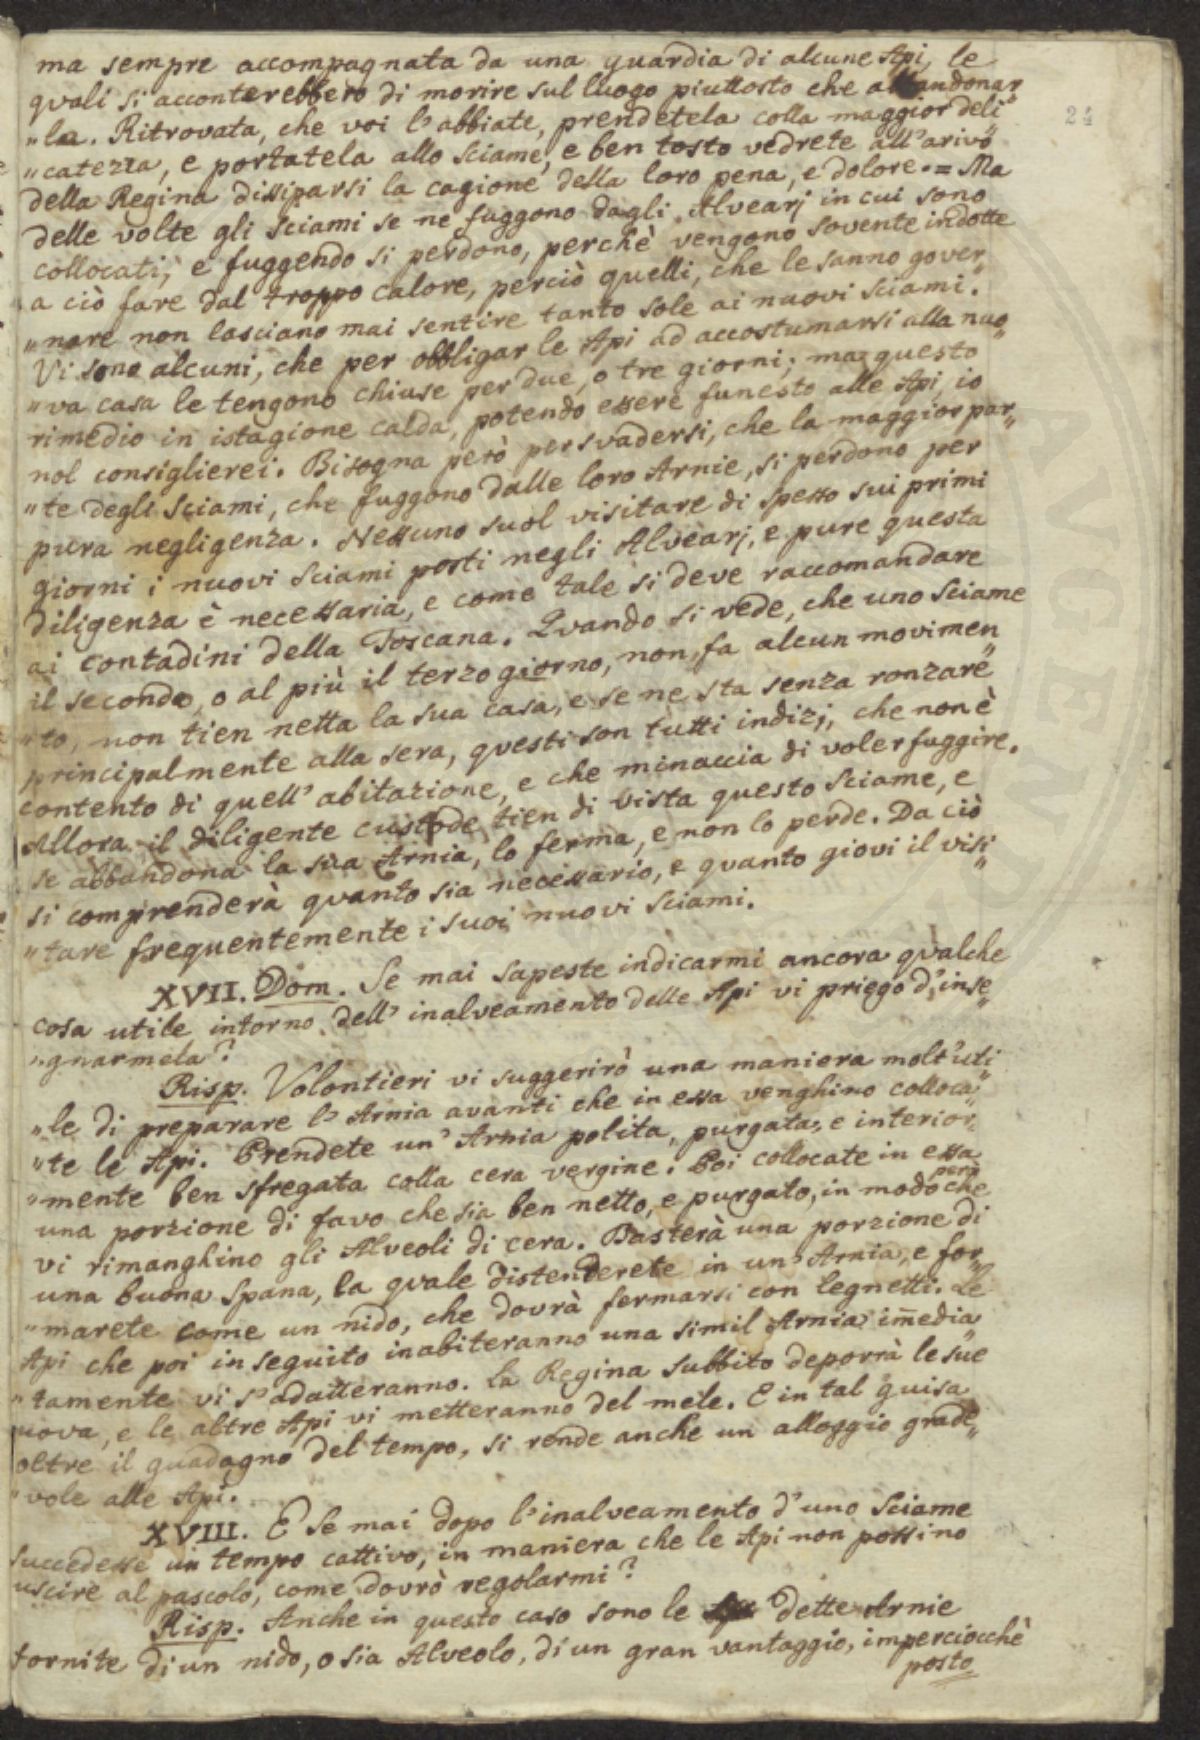 24
ma sempre accompagnata da una guardia di alcune Api, le
quali si acconterebbero di morire sul luogo piuttosto che abbandonar
"la. Ritrovata, che voi l'abbiate, prendetela colla maggior deli"
"catezza, e portatela allo sciame, e ben tosto vedrete all'arivo
della Regina dissiparsi la cagione della loro pena, e dolore. = Ma
delle volte gli sciami se ne fuggono dagli Alvearj in cui sono
collocati, e fuggendo si perdono, perchè vengono sovente indotte
a ciò fare dal troppo calore, perciò quelli, che le sanno gover"
"nare non lasciano mai sentire tanto sole ai nuovi sciami.
Vi sono alcuni, che per obbligar le Api ad accostumarsi alla nuo"
"va casa le tengono chiuse per due, o tre giorni; ma questo
rimedio in istagione calda, potendo essere funesto alle Api, io
nol consiglierei. Bisogna però persvadersi, che la maggior par"
"te degli Sciami, che fuggono dalle loro Arnie, si perdono per
pura negligenza. Nessuno suol visitare di spesso sui primi
giorni i nuovi sciami posti negli Alvearj, e pure questa
diligenza è necessaria, e come tale si deve raccomandare
ai contadini della Toscana. Quando si vede, che uno sciame
il secondo, o al più il terzo giorno, non fa alcun movimen"
"to, non tien netta la sua casa, e se ne sta senza ronzare
principalmente alla sera, questi son tutti indizj, che non è
contento di quell'abitazione, e che minaccia di voler fuggire.
Allora il diligente custode tien di vista questo sciame, e
se abbandona la sua Arnia, lo ferma, e non lo perde. Da ciò
si comprenderà quanto sia necessario, e quanto giovi il visi"
"tare frequentemente i suoi nuovi sciami.
XVII. Dom. Se mai sapeste indicarmi ancora qualche
cosa utile intorno dell'inalveamento delle Api vi priego d'inse"
"gnarmela?
Risp. Volontieri vi suggerirò una maniera molt'uti"
"le di preparare l'Arnia avanti che in essa venghino colloca"
"te le Api. Prendete un'Arnia polita, purgata, e interior"
"mente ben sfregata colla cera vergine. Poi collocate in essa
una porzione di favo che sia ben netto, e purgato, in modo però che
vi rimanghino gli Alveoli di cera. Basterà una porzione di
una buona spana, la quale distenderete in un'Arnia, e for"
"marete come un nido, che dovrà fermarsi con legnetti. Le
Api che poi in seguito inabiteranno una simil Arnia im̅edia"
"tamente vi s'adatteranno. La Regina subbito deporrà le sue
uova, e le altre Api vi metteranno del mele. E in tal guisa
oltre il guadagno del tempo, si rende anche un alloggio grade"
"vole alle Api.
XVIII. E se mai dopo l'inalveamento d'uno sciame
succedesse un tempo cattivo, in maniera che le Api non possino
uscire al pascolo, come dovrò regolarmi?
Risp. Anche in questo caso sono le dette Arnie
fornite di un nido, o sia Alveolo, di un gran vantaggio, imperciocchè
posto